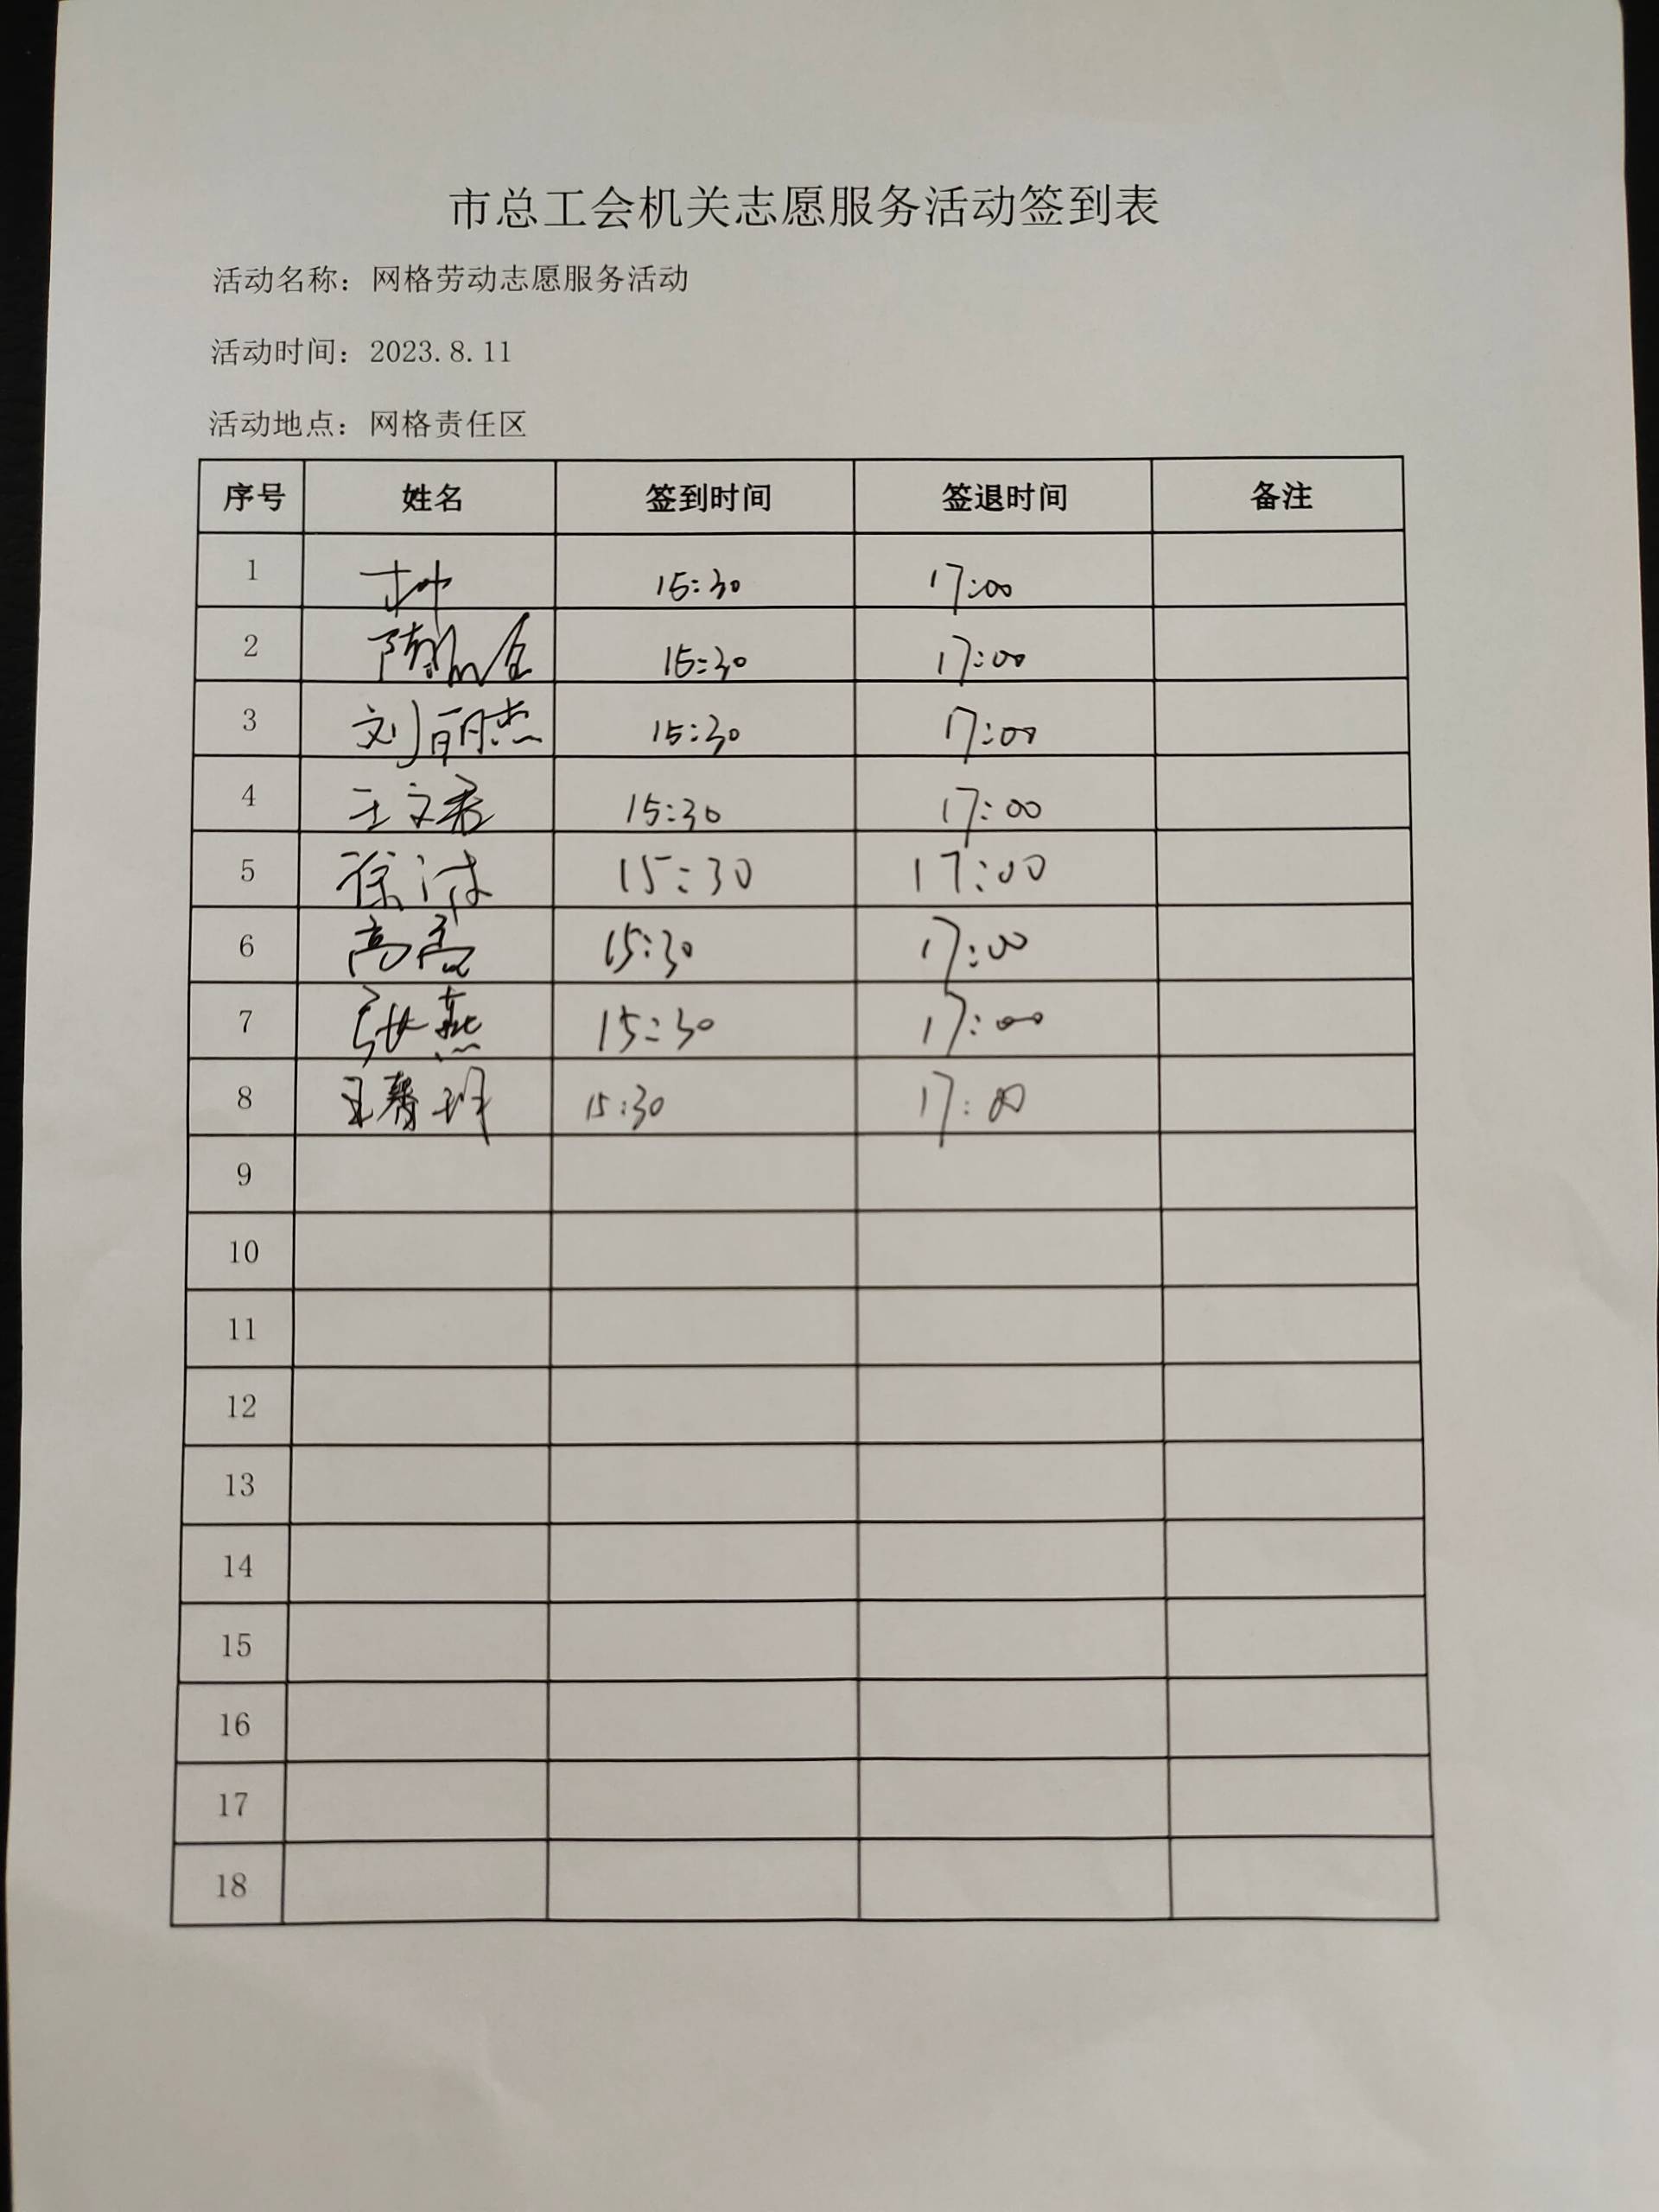 市总工会机关志愿服务活动签到表
活动名称：网格劳动志愿服务活动
活动时间：2023.8.11
活动地点：网格责任区
序号 姓名 签到时间 签退时间 备注
1 15:30 17:00
2 15:30 17:00
3 刘丽杰 15:30 17:00
4 王文君 15:30 17:00
5 徐 15:30 17:00
6 高 15:30 17:00
7 张燕 15:30 17:00
8 王春 15:30 17:00
9
10
11
12
13
14
15
16
17
18